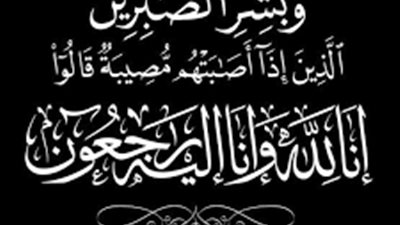 وَبَشِّرِ الصَّٰبِرِينَ
الَّذِينَ إِذَآ أَصَٰبَتْهُم مُّصِيبَةٌ قَالُوٓا۟
إنا لله وإنا إليه راجعون